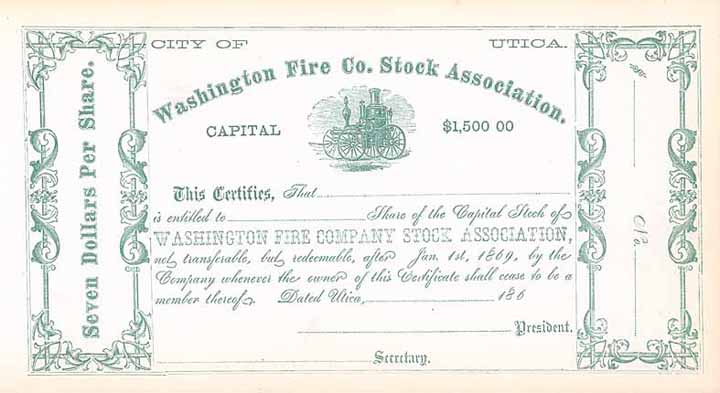 CITY OF UTICA.
Washington Fire Co. Stock Association.
CAPITAL $1,500 00
Seven Dollars Per Share.
This Certifies, That
is entitled to Share of the Capital Stock of
WASHINGTON FIRE COMPANY STOCK ASSOCIATION,
not transferable, but redeemable, after Jan. 1st, 1869, by the
Company whenever the owner of this Certificate shall cease to be a
member thereof. Dated Utica, 186
President.
Secretary.